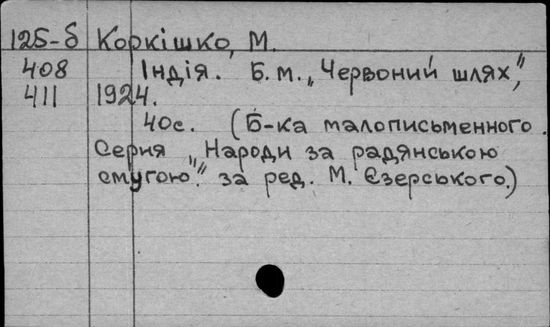 125-б Коркішко, М.
408 Індія. Б.м. „Червоний шлях”,
411 1924.
40с. (Б-ка малописьменного.
Серия „Народи за радянською
смугою”. за ред. М. Єзерського.)